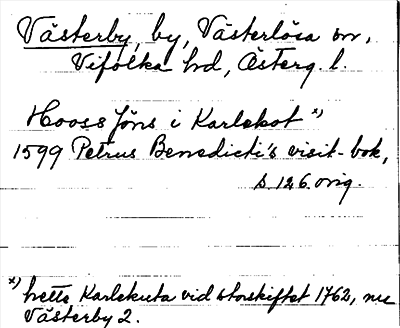 Västerby, by, Västerlösa sn,
Vifolka hd, Österg. l.
Hooss Jöns i Karlekot x)
1599 Petrus Benedicti's visit-bok,
s. 126 orig.
x) hette Karlekuta vid storskiftet 1762, nu
Västerby 2.